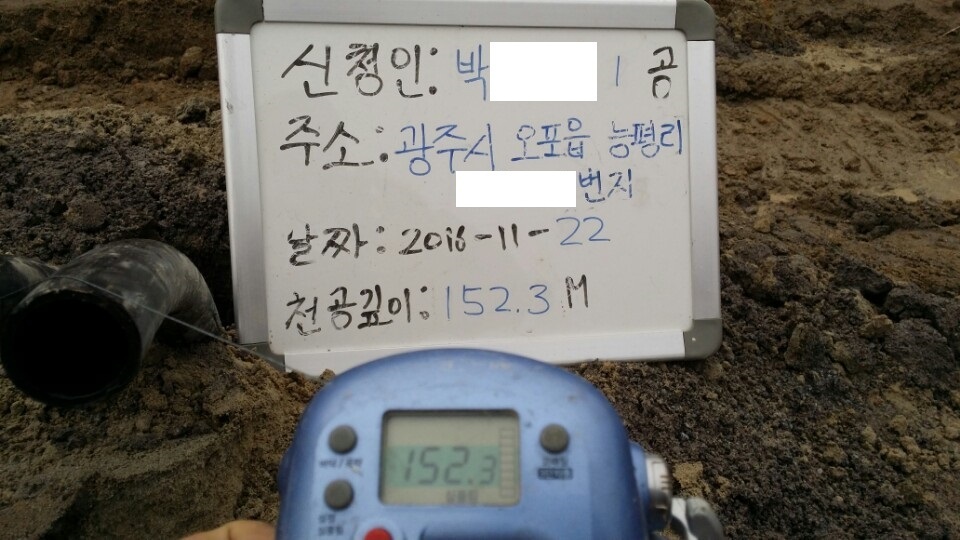 신청인: 박 1 공
주소: 광주시 오포읍 능평리
번지
날짜: 2016-11-22
천공깊이: 152.3 M
152.3